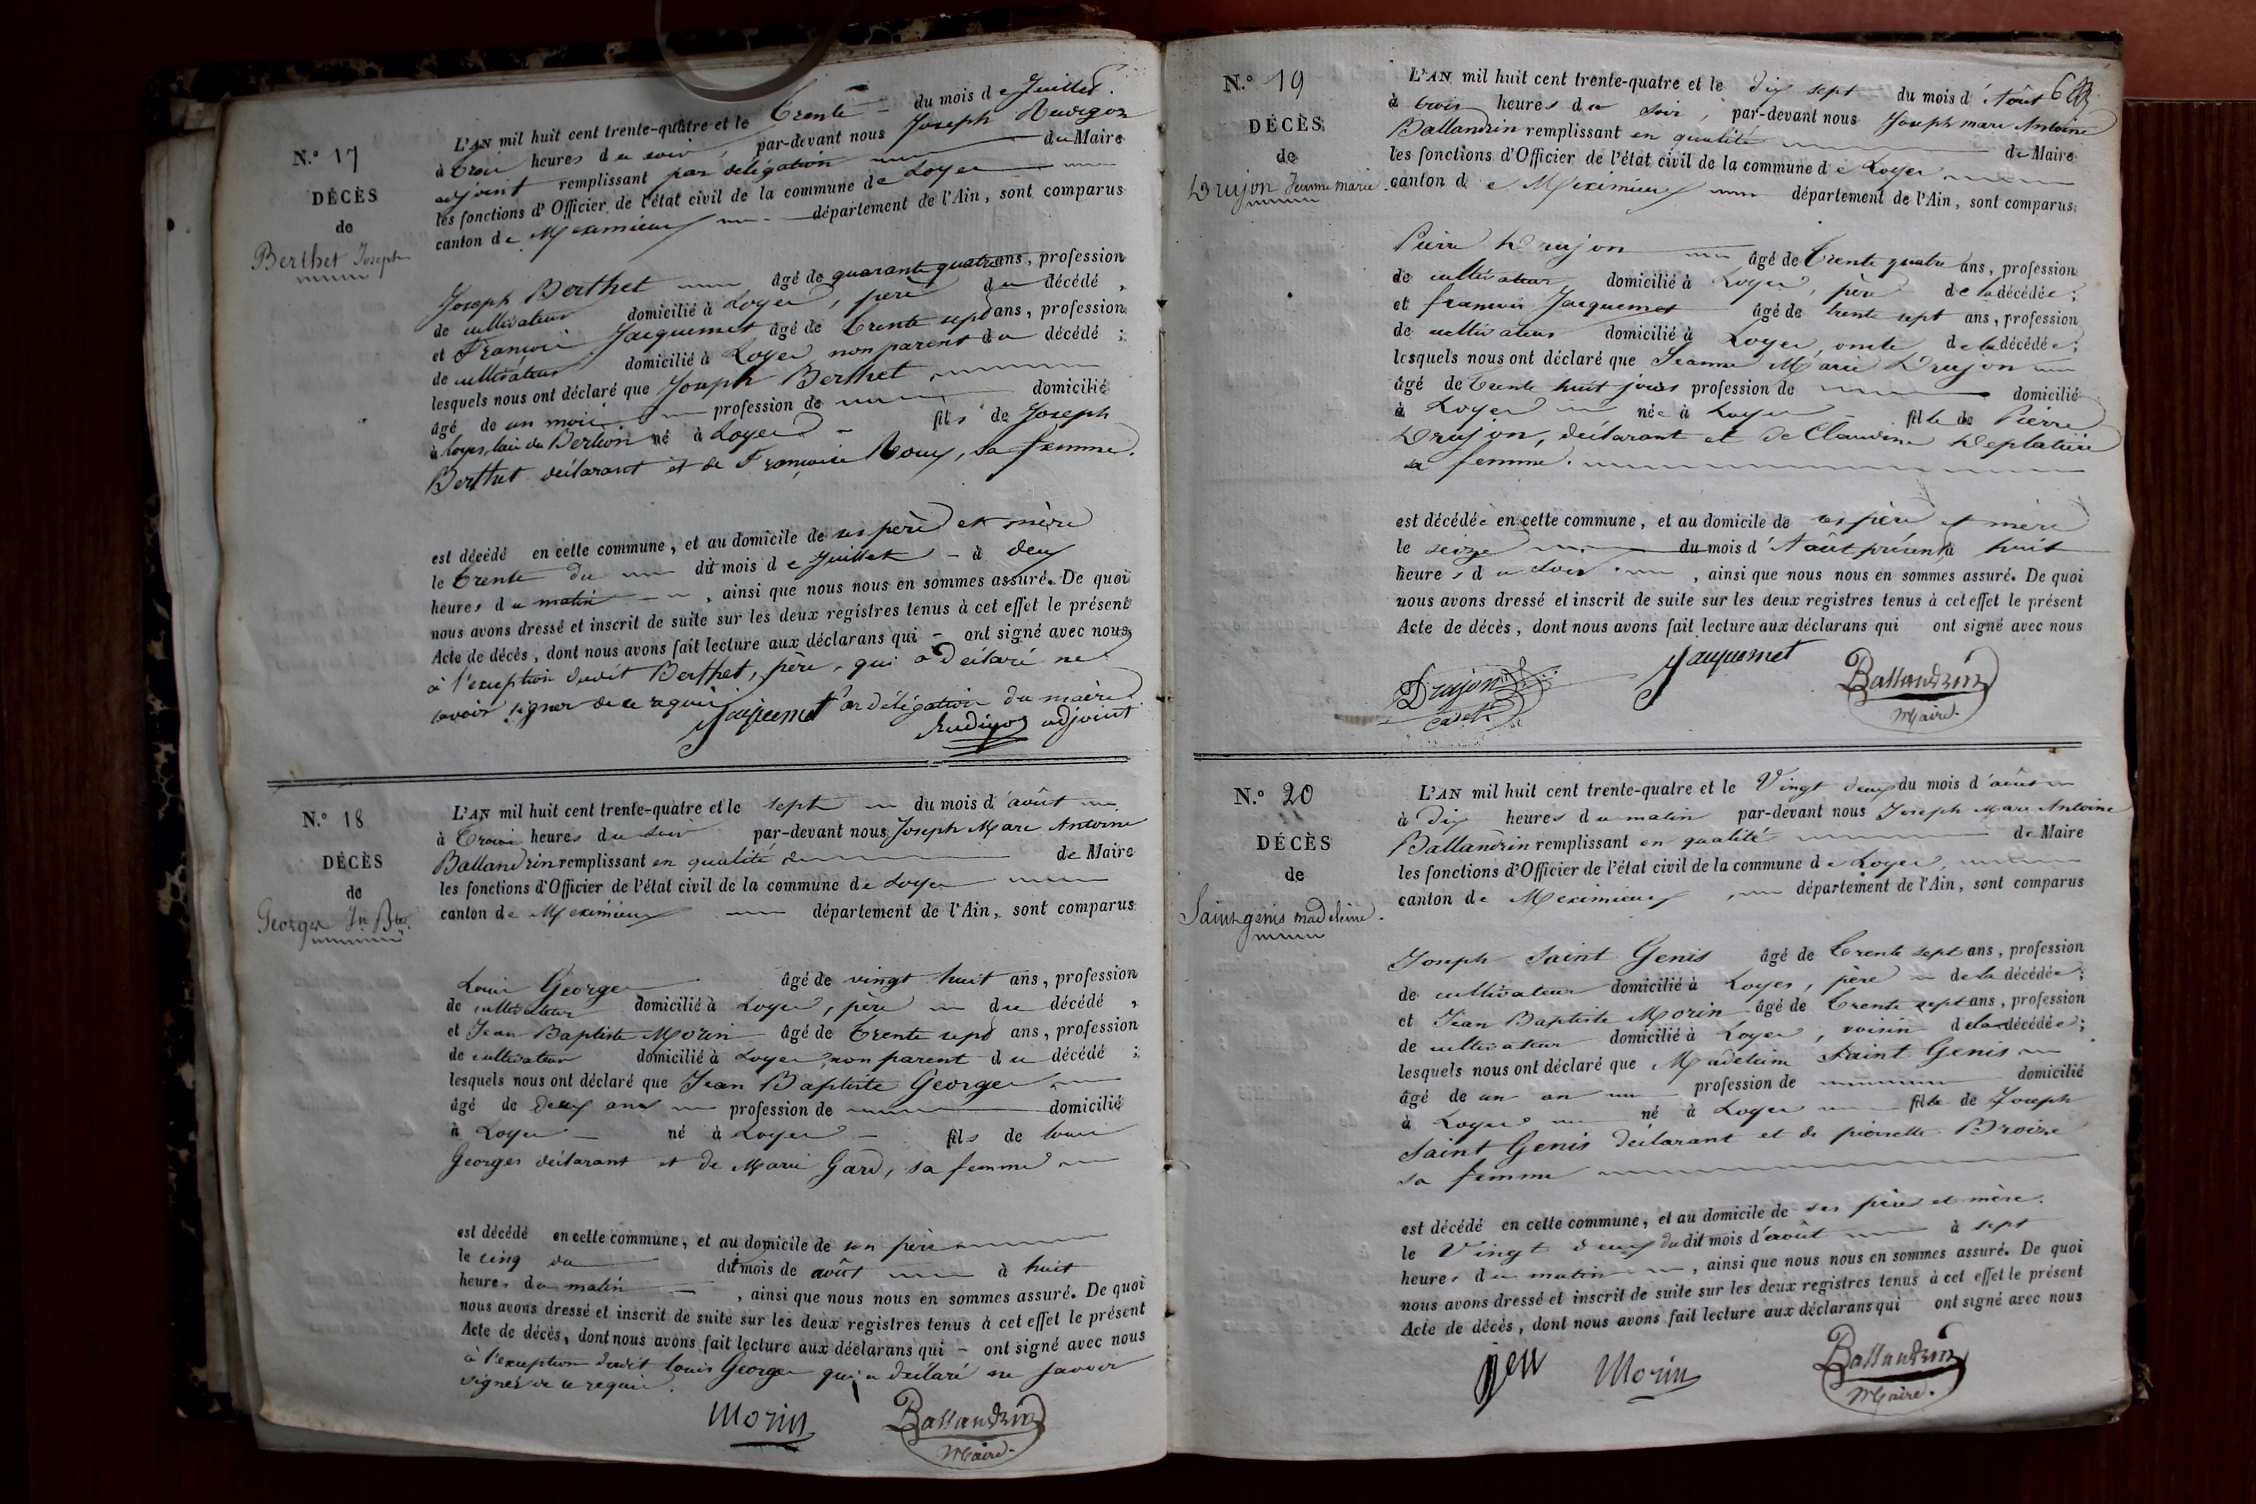 N.° 17
DÉCÈS
de
Berthet Joseph
L'AN mil huit cent trente-quatre et le trente du mois de Juillet.
à trois heures du soir, par-devant nous Joseph
adjoint remplissant par délégation du Maire
les fonctions d'Officier de l'état civil de la commune de Loyes
canton de Meximieux département de l'Ain, sont comparus
Joseph Berthet âgé de quarante quatre ans, profession
de cultivateur domicilié à Loyes, père du décédé,
et François Jacquemet âgé de trente sept ans, profession
de cultivateur domicilié à Loyes, non parent du décédé;
lesquels nous ont déclaré que Joseph Berthet
âgé de un mois profession de domicilié
à Loyes, né à Loyes fils de Joseph
Berthet déclarant et de Françoise Roux, sa femme.
est décédé en cette commune, et au domicile de ses père et mère
le trente du dit mois de Juillet à deux
heures du matin, ainsi que nous nous en sommes assuré. De quoi
nous avons dressé et inscrit de suite sur les deux registres tenus à cet effet le présent
Acte de décès, dont nous avons fait lecture aux déclarans qui ont signé avec nous,
à l'exception dudit Berthet, père, qui a déclaré ne
savoir signer de ce requis
Jacquemet Par délégation du maire
adjoint
N.° 18
DÉCÈS
de
Georges Jn Bte
L'AN mil huit cent trente-quatre et le sept du mois d'août
à trois heures du soir par-devant nous Joseph Marc Antoine
Ballandrin remplissant en qualité de de Maire
les fonctions d'Officier de l'état civil de la commune de Loyes
canton de Meximieux département de l'Ain, sont comparus
Louis Georges âgé de vingt huit ans, profession
de cultivateur domicilié à Loyes, père du décédé,
et Jean Baptiste Morin âgé de trente sept ans, profession
de cultivateur domicilié à Loyes, non parent du décédé;
lesquels nous ont déclaré que Jean Baptiste Georges
âgé de deux ans profession de domicilié
à Loyes né à Loyes fils de Louis
Georges déclarant et de Marie Gard, sa femme
est décédé en cette commune, et au domicile de son père
le cinq du dit mois de août à huit
heures du matin, ainsi que nous nous en sommes assuré. De quoi
nous avons dressé et inscrit de suite sur les deux registres tenus à cet effet le présent
Acte de décès, dont nous avons fait lecture aux déclarans qui ont signé avec nous
à l'exception dudit Louis Georges qui a déclaré ne savoir
signer de ce requis.
Morin Ballandrin
Maire.
N.° 19
DÉCÈS
de
Drujon Jeanne marie
L'AN mil huit cent trente-quatre et le dix sept du mois d'Août
à trois heures du soir, par-devant nous Joseph marc Antoine
Ballandrin remplissant en qualité de Maire
les fonctions d'Officier de l'état civil de la commune de Loyes
canton de Meximieux département de l'Ain, sont comparus
Pierre Drujon âgé de trente quatre ans, profession
de cultivateur domicilié à Loyes, père de la décédée;
et francois Jacquemet âgé de trente sept ans, profession
de cultivateur domicilié à Loyes, oncle de la décédée;
lesquels nous ont déclaré que Jeanne Marie Drujon
âgé de trente huit jours profession de domicilié
à Loyes née à Loyes fille de Pierre
Drujon, déclarant et de Claudine
sa femme.
est décédée en cette commune, et au domicile de ses père et mère
le seize du mois d'Août présent à huit
heures du soir, ainsi que nous nous en sommes assuré. De quoi
nous avons dressé et inscrit de suite sur les deux registres tenus à cet effet le présent
Acte de décès, dont nous avons fait lecture aux déclarans qui ont signé avec nous
Drujon Jacquemet Ballandrin
cadet Maire.
N.° 20
DÉCÈS
de
Saint genis madeleine.
L'AN mil huit cent trente-quatre et le Vingt deux du mois d'août
à dix heures du matin par-devant nous Joseph Marc Antoine
Ballandrin remplissant en qualité de Maire
les fonctions d'Officier de l'état civil de la commune de Loyes
canton de Meximieux département de l'Ain, sont comparus
Joseph Saint Genis âgé de trente sept ans, profession
de cultivateur domicilié à Loyes, père de la décédée;
et Jean Baptiste Morin âgé de trente sept ans, profession
de cultivateur domicilié à Loyes, voisin de la décédée;
lesquels nous ont déclaré que Madeleine Saint Genis
âgé de un an profession de domicilié
à Loyes né à Loyes fille de Joseph
Saint Genis déclarant et de pierrette
sa femme
est décédé en cette commune, et au domicile de ses père et mère.
le Vingt deux du dit mois d'août à sept
heures du matin, ainsi que nous nous en sommes assuré. De quoi
nous avons dressé et inscrit de suite sur les deux registres tenus à cet effet le présent
Acte de décès, dont nous avons fait lecture aux déclarans qui ont signé avec nous
Morin Ballandrin
Maire.